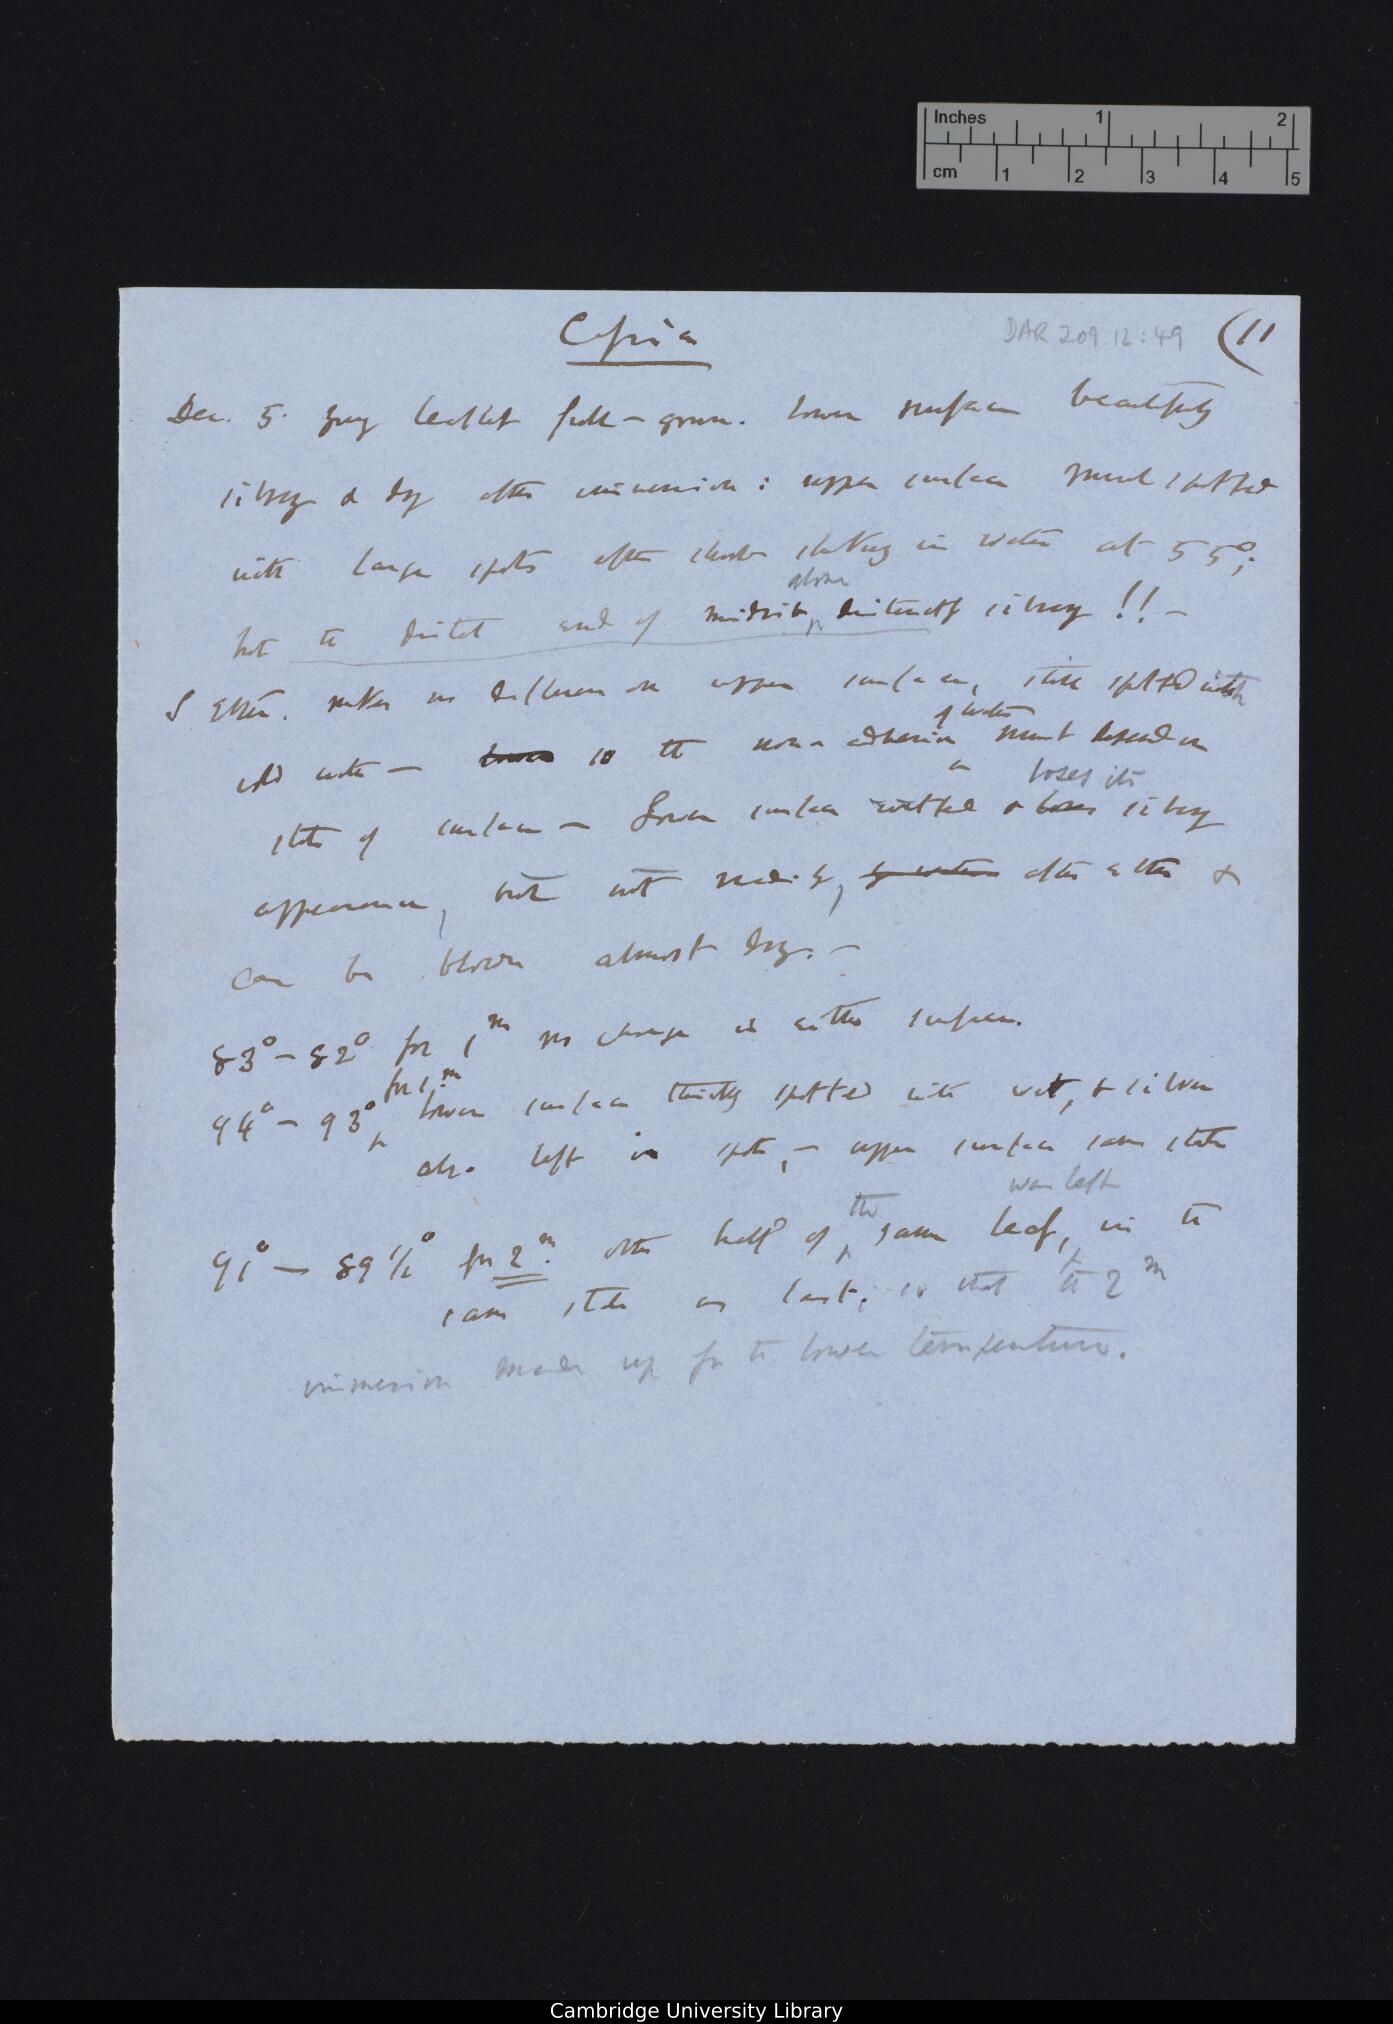 Inches 1 2
cm 1 2 3 4 5
Cassia
DAR 209.12:49
(11
Dec. 5. young leaflet full-grown. Lower surface beautifully
silvery & dry after immersion: upper surface much spotted
with large spots after short shaking in water at 55°;
but the distal end of midrib alone distinctly silvery!! —
S Ether. makes no difference on upper surface, still spotted with
cold water — so the non-adhesion of water must depend on
state of surface — Lower surface wetted & loses its silvery
appearance, but not readily, by water after ether &
can be blown almost dry. —
83° – 82° for 1m no change in either surface.
94° – 93° for 1.m lower surface thickly spotted with wet, & silver
also left in spots, — upper surface same state
91° — 89 1/2° for 2m. other half of the same leaf, was left in the
same state as last; so that the 2m
immersion made up for the lower temperature.
Cambridge University Library